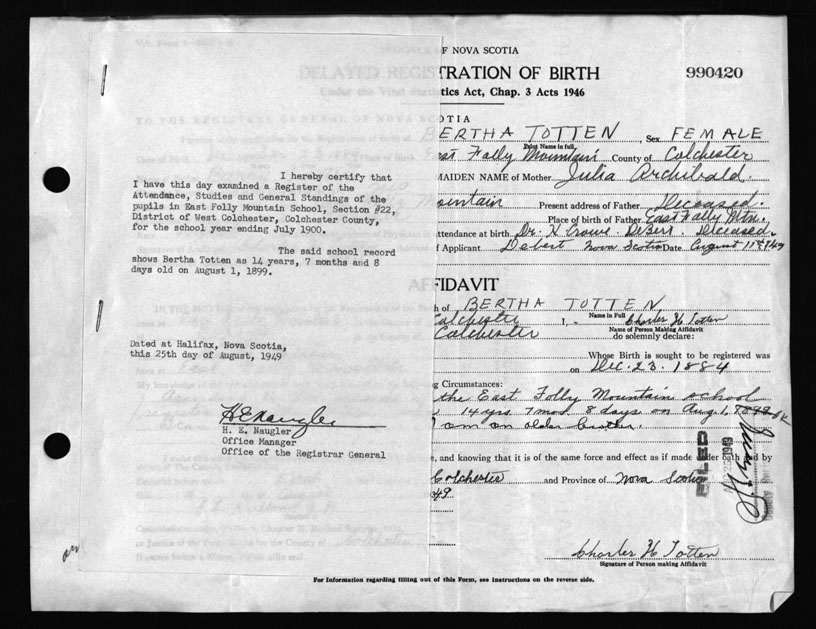 I hereby certify that
I have this day examined a Register of the
Attendance, Studies and General Standings of the
pupils in East Folly Mountain School, Section #22,
District of West Colchester, Colchester County,
for the school year ending July 1900.
The said school record
shows Bertha Totten as 14 years, 7 months and 8
days old on August 1, 1899.
Dated at Halifax, Nova Scotia,
this 25th day of August, 1949
H E Naugler
H. E. Naugler
Office Manager
Office of the Registrar General
F NOVA SCOTIA
DELAYED REGISTRATION OF BIRTH
990420
tics Act, Chap. 3 Acts 1946
OTIA
BERTHA TOTTEN, Sex FEMALE
Print Name in full
East Folly Mountain County of Colchester
MAIDEN NAME of Mother Julia Archibald.
Mountain Present address of Father Deceased.
Place of birth of Father East Folly Mtn.
ttendance at birth Dr. H Crowe. DeBert. Deceased.
f Applicant Debert Nova Scotia Date August 11th 1949
AFFIDAVIT
h of BERTHA TOTTEN
Name in Full
Colchester I, - Charles H Totten
Name of Person Making Affidavit
Colchester do solemnly declare:
Whose Birth is sought to be registered was
on Dec. 23. 1884
g Circumstances:
the East Folly Mountain school
14 yrs 7 mos 8 days on Aug 1, 1899
I am an older brother.
e, and knowing that it is of the same force and effect as if made under oath and by
Colchester and Province of Nova Scotia
49
FILED
1949
Charles H Totten
Signature of Person making Affidavit
For Information regarding filling out of this Form, see Instructions on the reverse side.